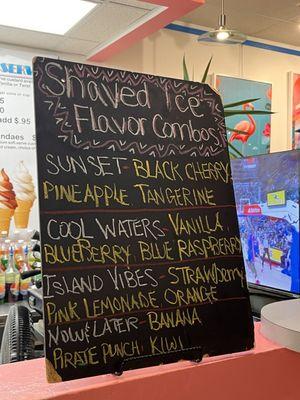 Shaved Ice
Flavor Combos
SUNSET- BLACK CHERRY
PINEAPPLE TANGERINE
COOL WATERS- VANILLA,
BLUEBERRY, BLUE RASPBERRY
ISLAND VIBES- STRAWBERRY
PINK LEMONADE ORANGE
NOW&LATER- BANANA
PIRATE PUNCH, KIWI
add $.95